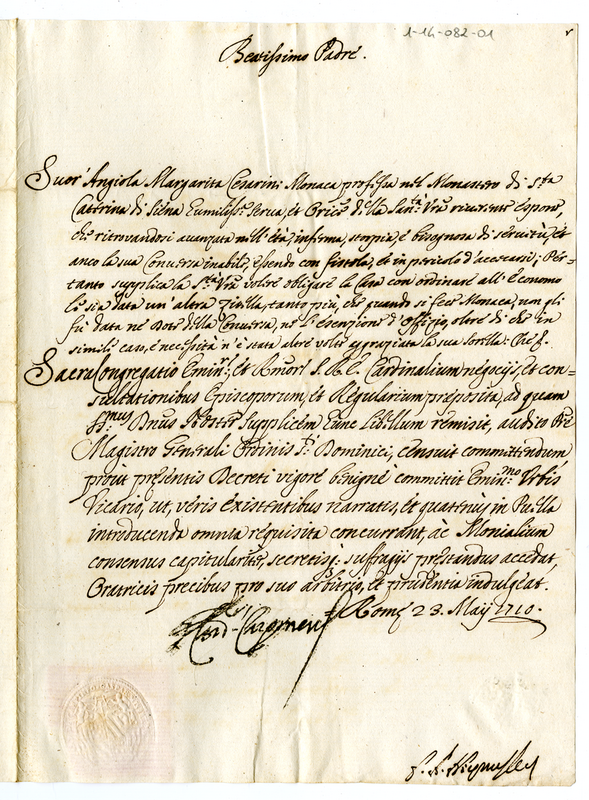 1-14-082-01
Beatissimo Padre.
Suor' Angiola Margarita Cesarini Monaca professa nel Monastero di Sta
Caterina di Siena humiliss: serva, et Oratrice della Santà Vra riverente espone,
che ritrovandosi avanzata nell'età, inferma, storpia, e bisognosa di servitù, et
anco la sua Conversa inabile, essendo con fistola, et in pericolo d'accecarsi; Per=
tanto supplica la Stà Vra volere obligare la Casa con ordinare all'Economo
li sia data un'altra Zitella, tanto più, che quando si fece Monaca, non gli
fù data nè Dote della Conversa, nè l'esenzione d'offizio, oltre di che in
simili caso, e necessità n'è stata altre volte aggraziata la sua sorella. Che &.
Sacra Congregatio Eminm: et Rmor: S. R. E. Cardinalium negocijs, et con=
sultationibus Episcoporum, et Regularium preposita, ad quam
SSmus Dnus Noster supplicem hunc libellum remisit, audito Pre
Magistro Generali Ordinis S: Dominici, censuit committendum
prout presentis Decreti vigore benignè committit Eminmo Urbis
Vicario, ut, veris existentibus narratis, et quatenùs in Puella
introducenda omnia requisita concurrant, ac Monialium
consensus capitulariter, secretisq: suffragijs prestandus accedat,
Oratricis precibus pro suo arbitrio, et prudentia indulgeat.
Rome 23. Maij 1710.
Card.